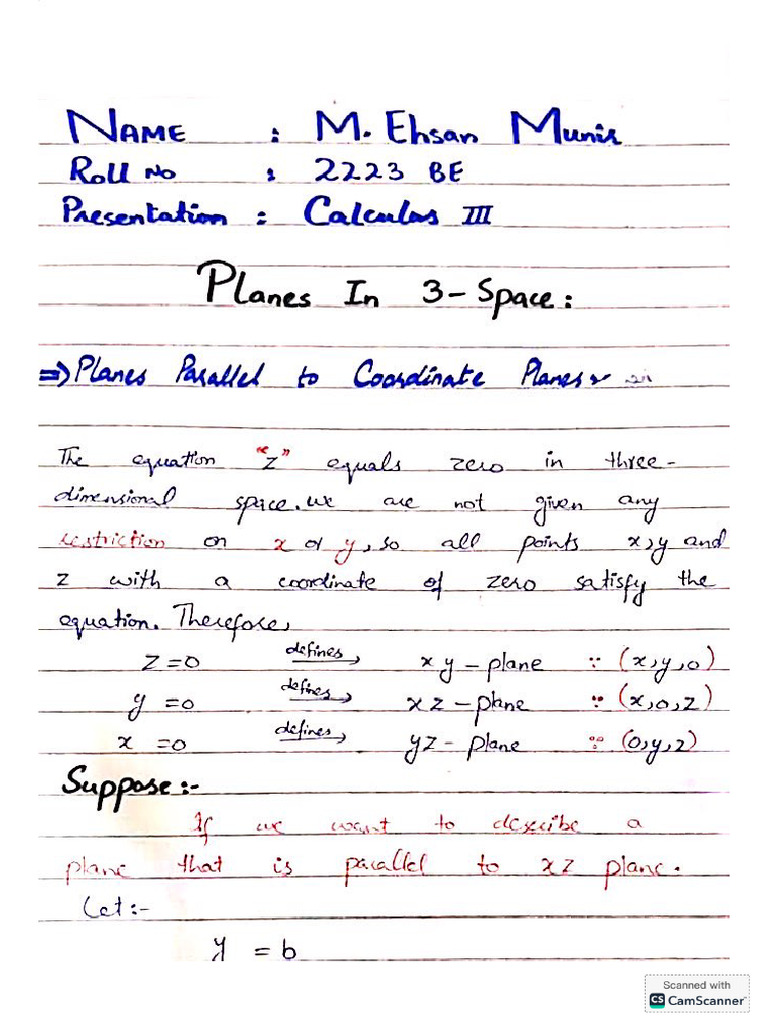 NAME : M. Ehsan Munir
Roll No : 2223 BE
Presentation : Calculas III
Planes In 3-Space:
⇒ Planes Parallel to Coordinate Planes
The equation "z" equals zero in three-
dimensional space. we are not given any
restriction on x or y, so all points x,y and
z with a coordinate of zero satisfy the
equation. Therefore,
z = 0 defines xy-plane ∵ (x,y,0)
y = 0 defines xz-plane ∵ (x,0,z)
x = 0 defines yz-plane ∵ (0,y,z)
Suppose:-
If we want to describe a
plane that is parallel to xz plane.
Let:-
y = b
Scanned with
CS CamScanner